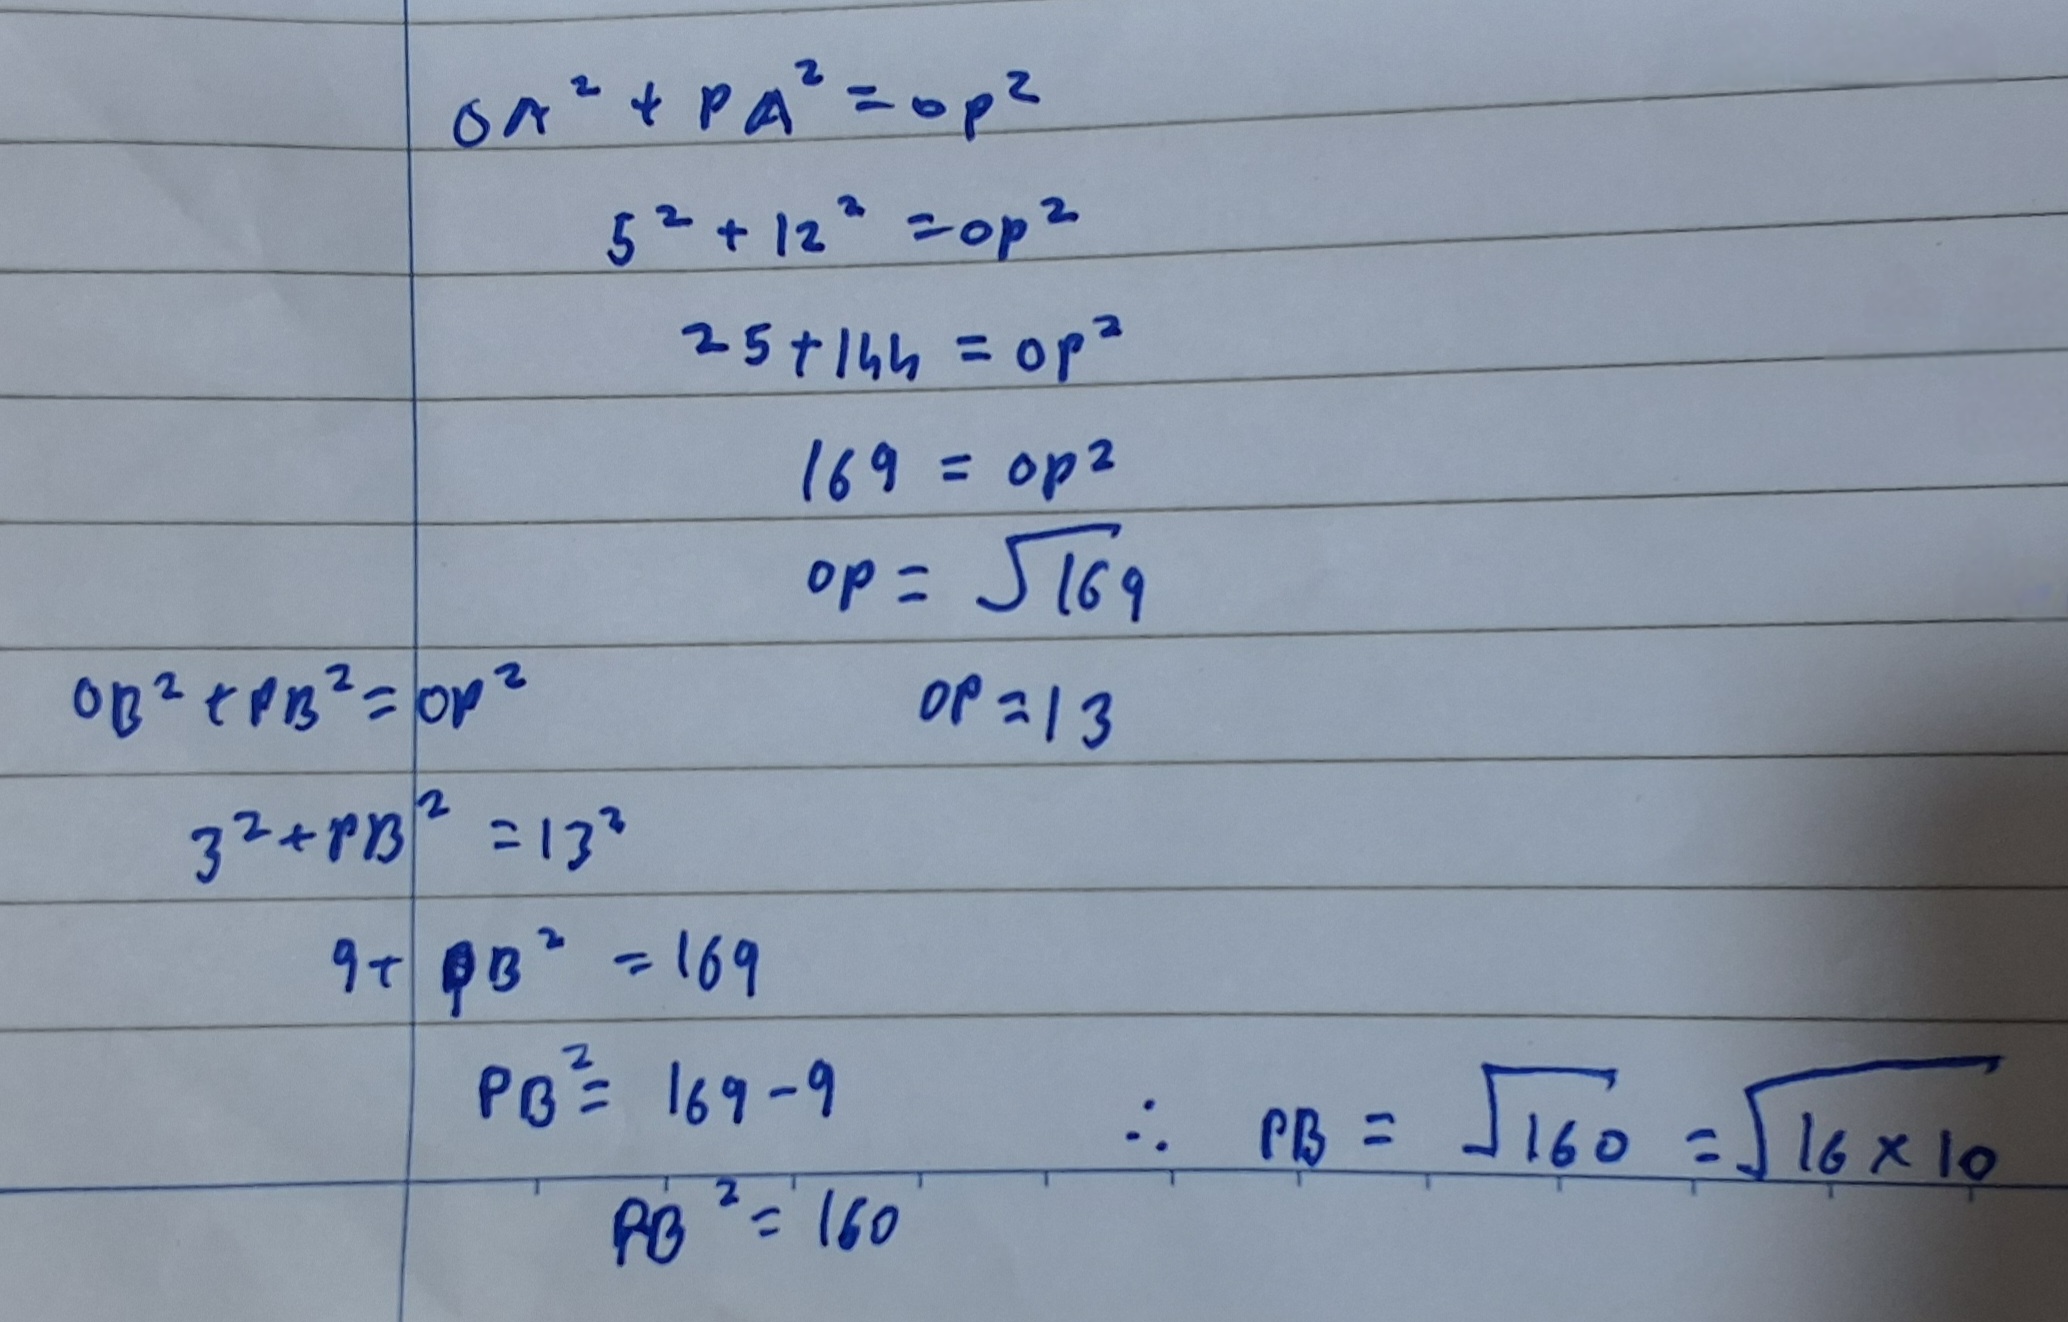 OA² + PA² = OP²
5² + 12² = OP²
25 + 144 = OP²
169 = OP²
OP = √169
OP = 13
OB² + PB² = OP²
3² + PB² = 13²
9 + PB² = 169
PB² = 169 - 9
PB² = 160
∴ PB = √160 = √16 × 10